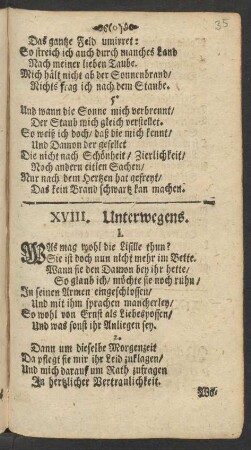 35
Das gantze Feld umirret:
So streich ich auch durch manches Land
Nach meiner lieben Taube.
Mich hält nicht ab der Sonnenbrand/
Nichts frag ich nach dem Staube.
5.
Und wann die Sonne mich verbrennt/
Der Staub mich gleich verstellet.
So weiß ich doch/ daß die mich kennt/
Und Damon der gesellet
Die nicht nach Schönheit/ Zierlichkeit/
Noch andern eitlen Sachen/
Nur nach dem Hertzen hat gefreyt/
Das kein Brand schwartz kan machen.
XVIII. Unterwegens.
1.
WAs mag wohl die Lisille thun?
Sie ist doch nun nicht mehr im Bette.
Wann sie den Damon bey ihr hette/
So glaub ich/ möchte sie noch ruhn/
In seinen Armen eingeschlossen/
Und mit ihm sprachen mancherley/
So wohl von Ernst als Liebespossen/
Und was sonst ihr Anliegen sey.
2.
Dann um dieselbe Morgenzeit
Da pflegt sie mir ihr Leid zuklagen/
Und mich darauf um Rath zufragen
In hertzlicher Vertraulichkeit.